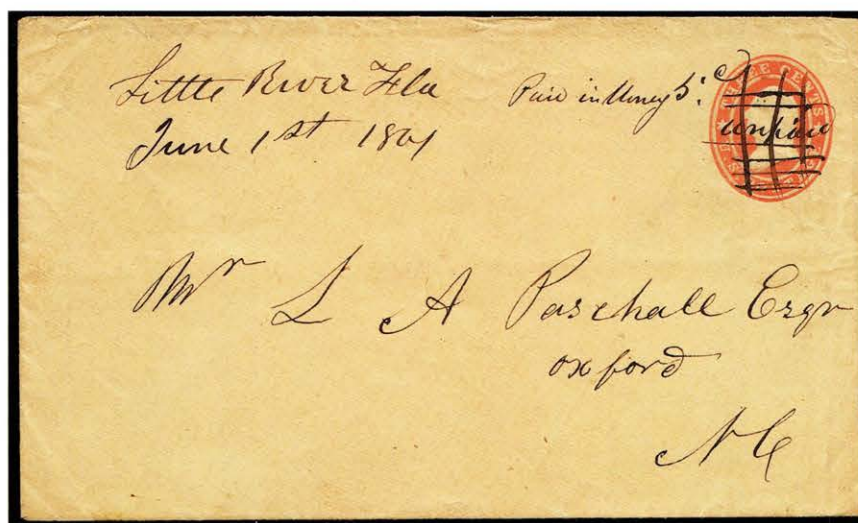 Little River Fla
June 1st 1861
Paid in Money 5c
THREE CENTS
unpaid
Mr L A Paschall Esqr
Oxford
NC